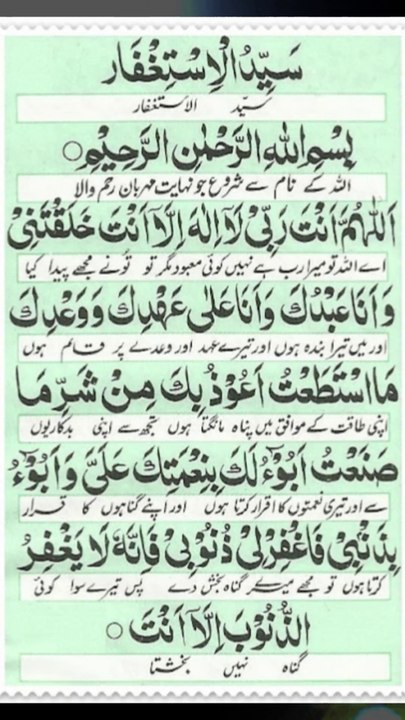 سَيِّدُ الْاِسْتِغْفَار
سیّد الاستغفار
بِسْمِ اللهِ الرَّحْمٰنِ الرَّحِيْمِ ○
اللہ کے نام سے شروع جو نہایت مہربان رحم والا
اَللّٰهُمَّ اَنْتَ رَبِّیْ لَآ اِلٰهَ اِلَّآ اَنْتَ خَلَقْتَنِیْ
اے اللہ تو میرا رب ہے نہیں کوئی معبود مگر تو تونے مجھے پیدا کیا
وَاَنَا عَبْدُكَ وَاَنَا عَلٰى عَهْدِكَ وَوَعْدِكَ
اور میں تیرا بندہ ہوں اور تیرے عہد اور وعدے پر قائم ہوں
مَا اسْتَطَعْتُ اَعُوْذُ بِكَ مِنْ شَرِّ مَا
اپنی طاقت کے موافق میں پناہ مانگتا ہوں تجھ سے اپنی بدکاریوں
صَنَعْتُ اَبُوْٓءُ لَكَ بِنِعْمَتِكَ عَلَیَّ وَاَبُوْٓءُ
سے اور تیری نعمتوں کا اقرار کرتا ہوں اور اپنے گناہوں کا قرار
بِذَنْۢبِیْ فَاغْفِرْلِیْ ذُنُوْبِیْ فَاِنَّهٗ لَا يَغْفِرُ
کرتا ہوں تو مجھے میرے گناہ بخش دے پس تیرے سوا کوئی
الذُّنُوْبَ اِلَّآ اَنْتَ ○
گناہ نہیں بخشتا